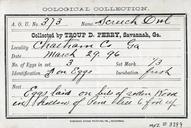 OOLOGICAL COLLECTION.
A. O. U. No. 373 Name Screech Owl
Collected by TROUP D. PERRY, Savannah, Ga.
Locality Chatham Co Ga
Date March 29, 96
No. of Eggs in set 3 Set Mark 1/3
Identification on Eggs Incubation fresh
Nest Eggs laid on bits of rotten wood
in hollow of Pine tree 6 foot up